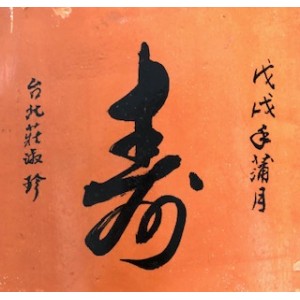 戊戌年蒲月
壽
台北莊淑珍